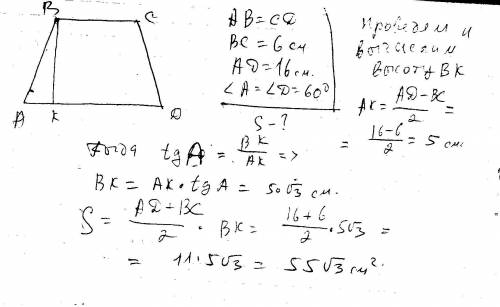 B C
A K D
AB = CD
BC = 6 см
AD = 16 см.
∠A = ∠D = 60°
S - ?
Проведем и
вычислим
высоту BK
AK = (AD - BC)/2 =
= (16 - 6)/2 = 5 см.
Тогда tg A = BK/AK =>
BK = AK · tg A = 5√3 см.
S = (AD + BC)/2 · BK = (16 + 6)/2 · 5√3 =
= 11 · 5√3 = 55√3 см².